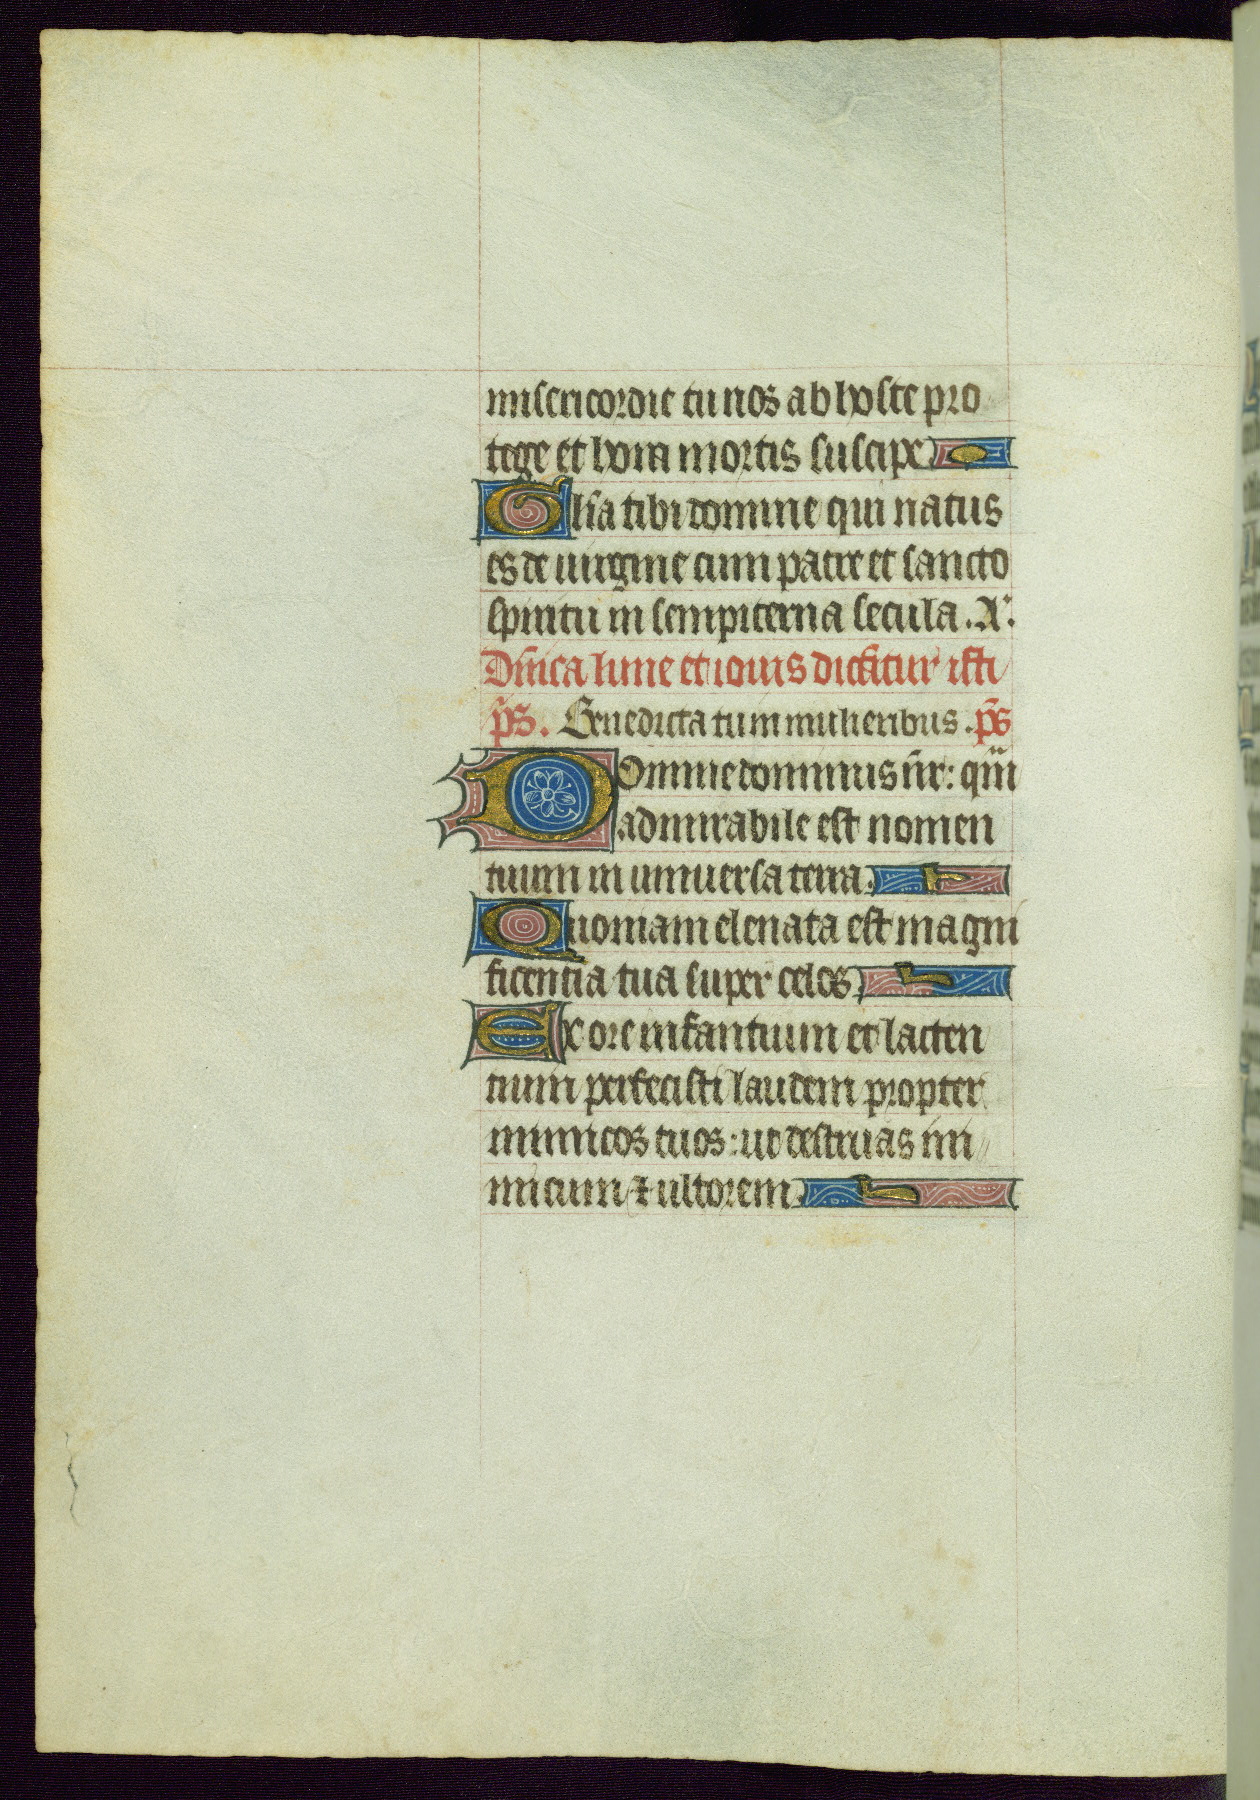 misericordie tu nos ab hoste pro
tege et hora mortis suscipe
Gl̃ia tibi domine qui natus
es de uirgine cum patre et sancto
spiritu in sempiterna secula. A.
Dñica lune et iouis dicũtur isti
p̃s. Benedicta tu in mulieribus. p̃s
Domine dominus nr̃: qm̃
admirabile est nomen
tuum in uniuersa terra.
Quoniam eleuata est magni
ficentia tua super celos
Ex ore infantium et lacten
tium perfecisti laudem propter
inimicos tuos: ut destruas ini
micum ⁊ ultorem